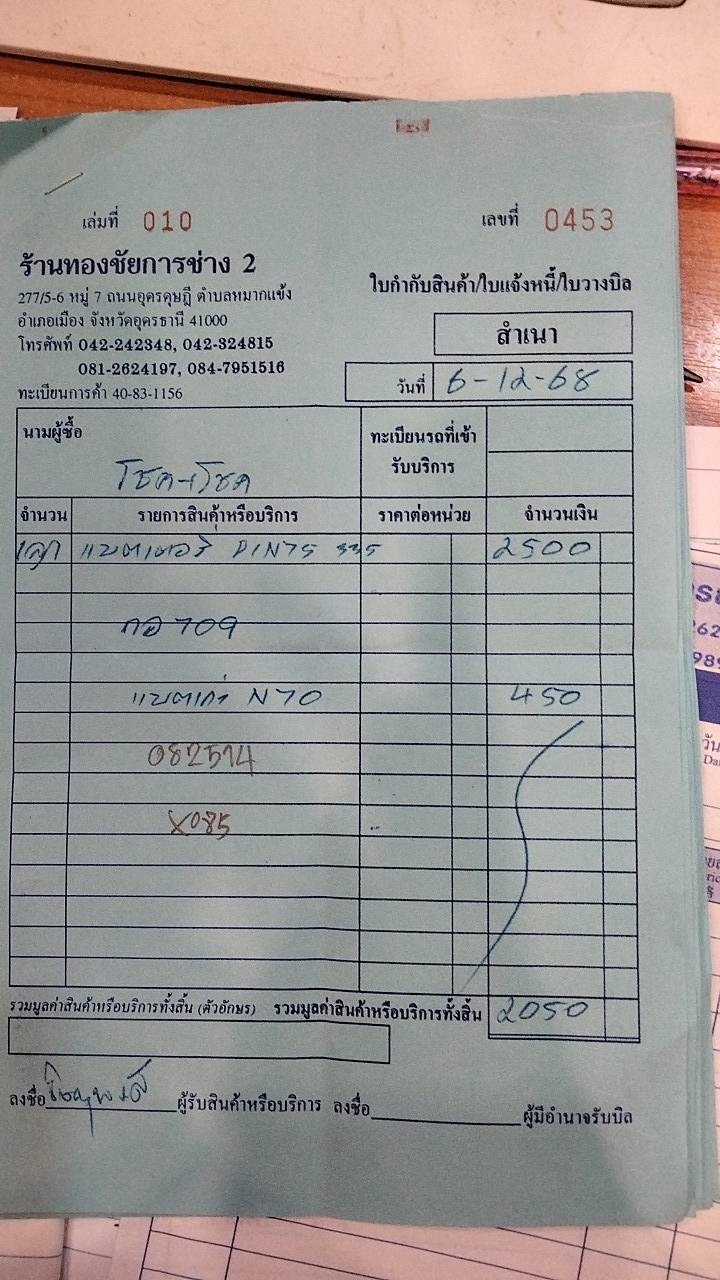 เล่มที่ 010
เลขที่ 0453
ร้านทองชัยการช่าง 2
277/5-6 หมู่ 7 ถนนอุดรดุษฎี ตำบลหมากแข้ง
อำเภอเมือง จังหวัดอุดรธานี 41000
โทรศัพท์ 042-242348, 042-324815
081-2624197, 084-7951516
ทะเบียนการค้า 40-83-1156
ใบกำกับสินค้า/ใบแจ้งหนี้/ใบวางบิล
สำเนา
วันที่ 6-12-68
นามผู้ซื้อ
โชค-1โชค
ทะเบียนรถที่เข้า
รับบริการ
จำนวน รายการสินค้าหรือบริการ ราคาต่อหน่วย จำนวนเงิน
แบตเตอรี่ DIN75 335 2500
กอ 709
แบตเก่า N70 450
082514
X085
รวมมูลค่าสินค้าหรือบริการทั้งสิ้น (ตัวอักษร) รวมมูลค่าสินค้าหรือบริการทั้งสิ้น 2050
ลงชื่อ ผู้รับสินค้าหรือบริการ ลงชื่อ ผู้มีอำนาจรับบิล